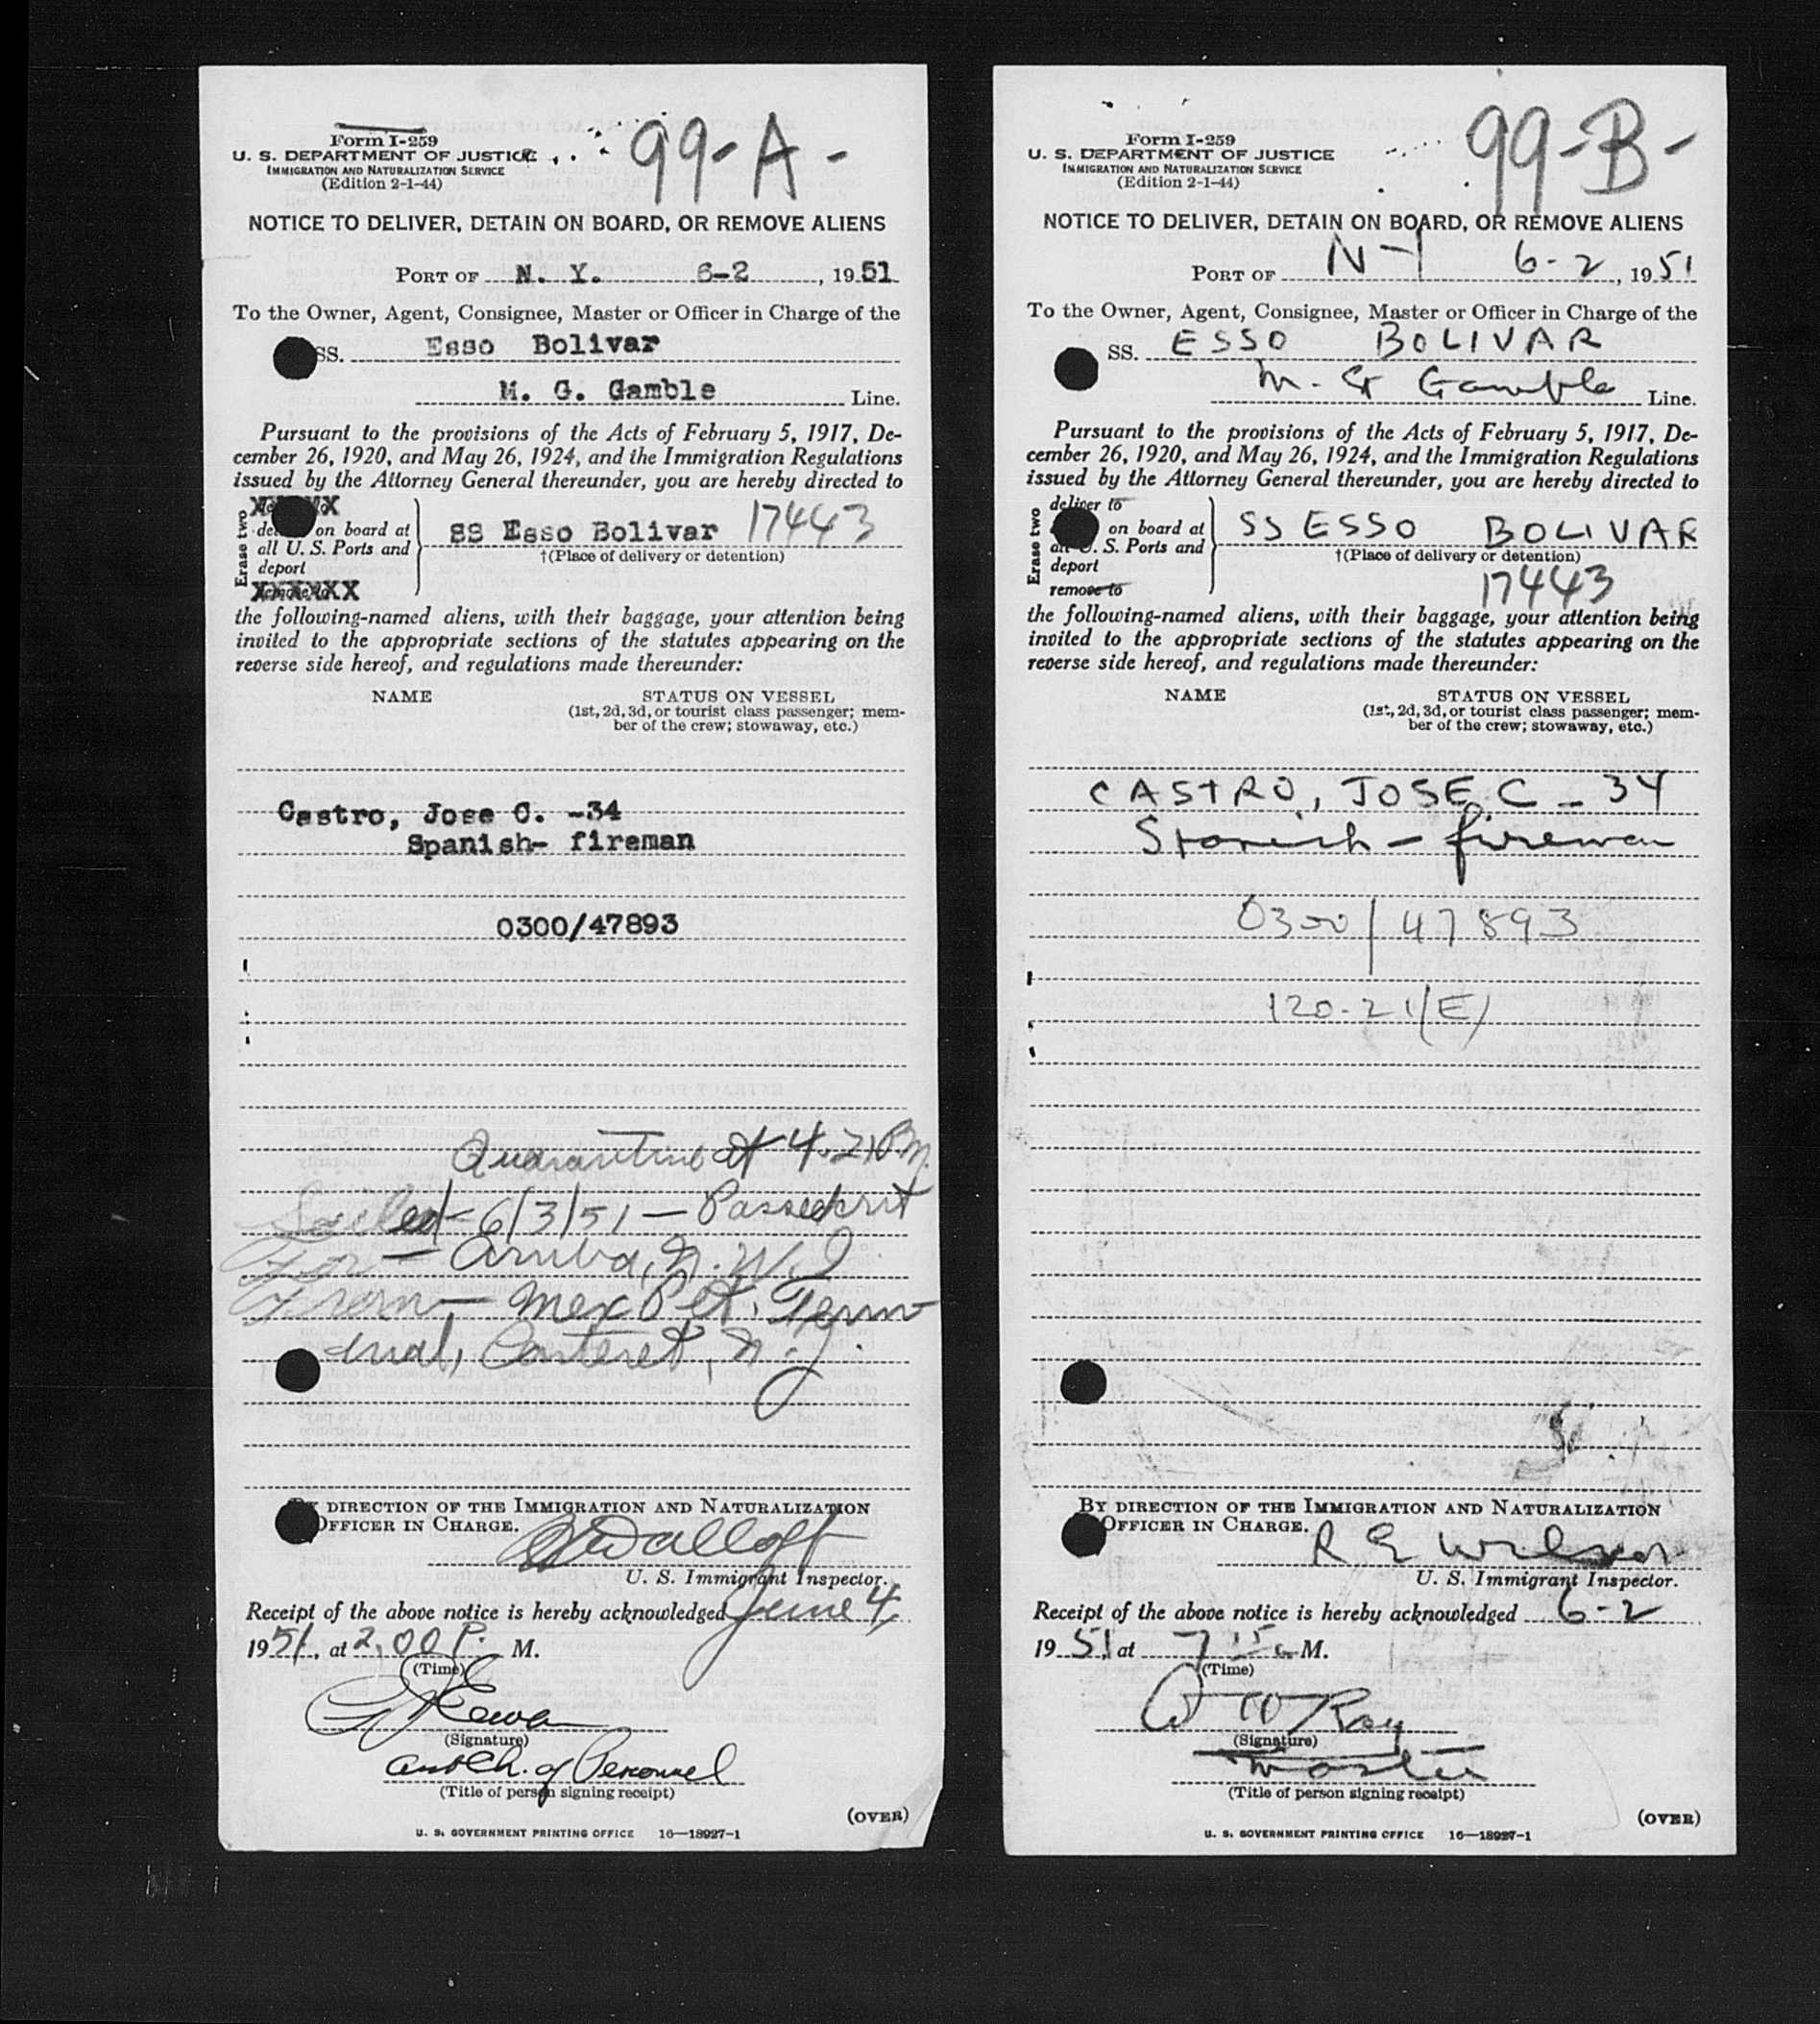 99-A-
Form I-259
U. S. DEPARTMENT OF JUSTICE
IMMIGRATION AND NATURALIZATION SERVICE
(Edition 2-1-44)
NOTICE TO DELIVER, DETAIN ON BOARD, OR REMOVE ALIENS
PORT OF N. Y. 6-2, 1951
To the Owner, Agent, Consignee, Master or Officer in Charge of the
SS. Esso Bolivar
M. G. Gamble Line.
Pursuant to the provisions of the Acts of February 5, 1917, De-
cember 26, 1920, and May 26, 1924, and the Immigration Regulations
issued by the Attorney General thereunder, you are hereby directed to
Erase two
on board at
all U. S. Ports and
deport
remove to
SS Esso Bolivar 17443
†(Place of delivery or detention)
the following-named aliens, with their baggage, your attention being
invited to the appropriate sections of the statutes appearing on the
reverse side hereof, and regulations made thereunder:
NAME STATUS ON VESSEL
(1st, 2d, 3d, or tourist class passenger; mem-
ber of the crew; stowaway, etc.)
Castro, Jose C. -34
Spanish- fireman
0300/47893
Quarantine at 4.21 P.m.
Sailed- 6/3/51 - Passed out
For - Aruba, N.W.I
From - Mex Pet. Term
inal, Carteret, N.J.
BY DIRECTION OF THE IMMIGRATION AND NATURALIZATION
OFFICER IN CHARGE.
U. S. Immigrant Inspector.
Receipt of the above notice is hereby acknowledged June 4,
1951, at 2,00 P. M.
(Time)
(Signature)
asst Ch. of Personnel
(Title of person signing receipt)
(OVER)
U. S. GOVERNMENT PRINTING OFFICE 16—18927-1
99-B-
Form I-259
U. S. DEPARTMENT OF JUSTICE
IMMIGRATION AND NATURALIZATION SERVICE
(Edition 2-1-44)
NOTICE TO DELIVER, DETAIN ON BOARD, OR REMOVE ALIENS
PORT OF N-Y 6-2, 1951
To the Owner, Agent, Consignee, Master or Officer in Charge of the
SS. ESSO BOLIVAR
M. G Gamble Line.
Pursuant to the provisions of the Acts of February 5, 1917, De-
cember 26, 1920, and May 26, 1924, and the Immigration Regulations
issued by the Attorney General thereunder, you are hereby directed to
Erase two
deliver to
on board at
all U. S. Ports and
deport
remove to
SS ESSO BOLIVAR
†(Place of delivery or detention)
17443
the following-named aliens, with their baggage, your attention being
invited to the appropriate sections of the statutes appearing on the
reverse side hereof, and regulations made thereunder:
NAME STATUS ON VESSEL
(1st, 2d, 3d, or tourist class passenger; mem-
ber of the crew; stowaway, etc.)
CASTRO, JOSE C - 34
Spanish - fireman
0300/47893
120-21(E)
BY DIRECTION OF THE IMMIGRATION AND NATURALIZATION
OFFICER IN CHARGE.
R E Wilson
U. S. Immigrant Inspector.
Receipt of the above notice is hereby acknowledged 6-2
1951, at 7 15 a M.
(Time)
Ray
(Signature)
Master
(Title of person signing receipt)
(OVER)
U. S. GOVERNMENT PRINTING OFFICE 16—18927-1